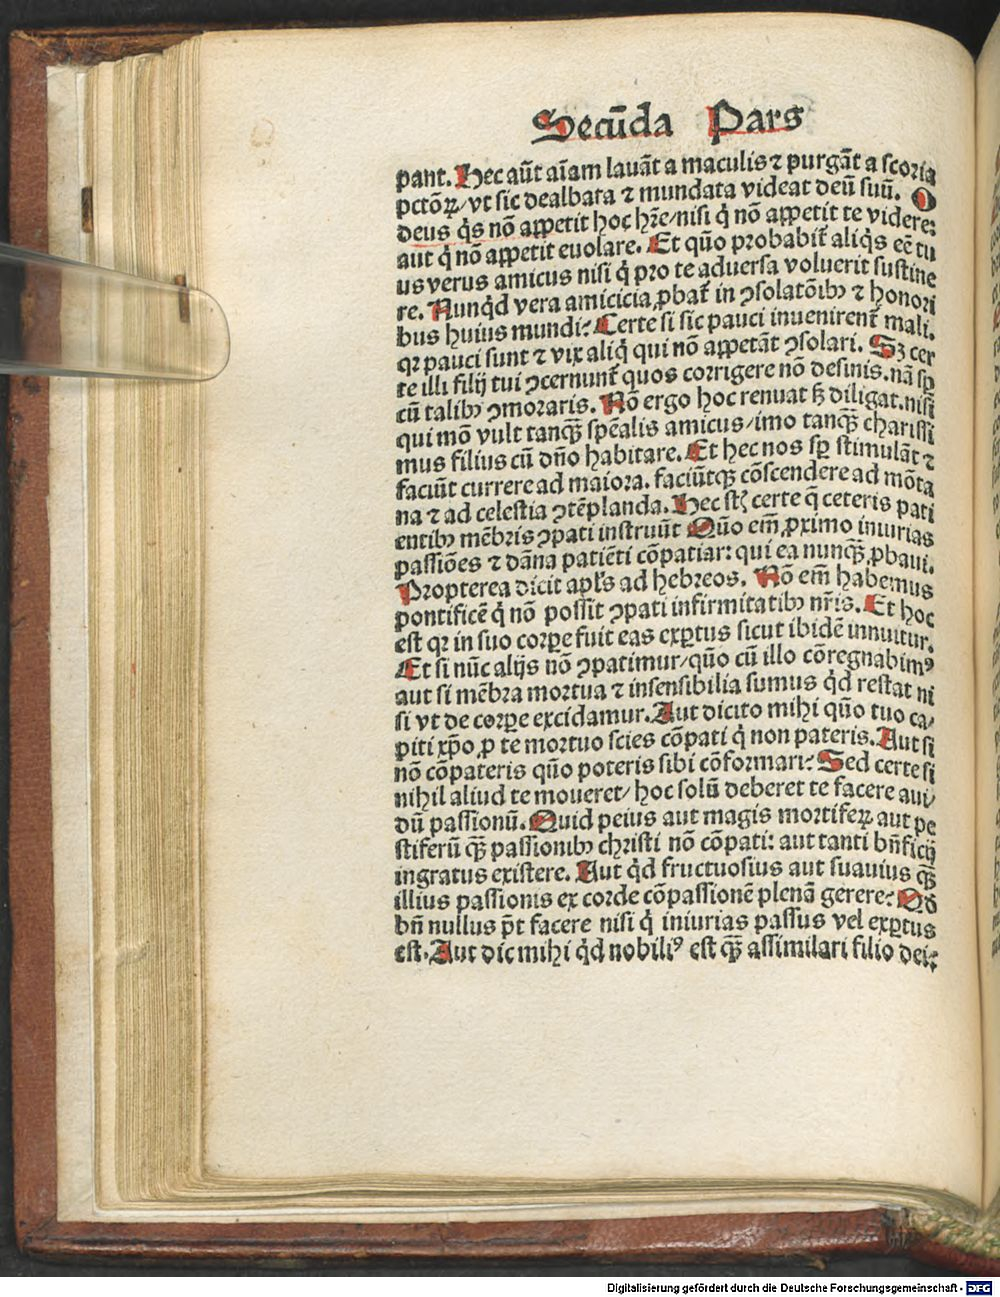 Secūda Pars
pant. Hec aūt aīam lauāt a maculis ⁊ purgāt a scoria
pctōꝝ/vt sic dealbata ⁊ mundata videat deū suū. O
deus q̇s nō appetit hoc hr̄e/nisi q̇ nō appetit te videre:
aut q̇ nō appetit euolare. Et quō probabit̄ aliq̇s eē tu
us verus amicus nisi q̇ pro te aduersa voluerit sustine
re. Nunq̇d vera amicicia ꝓbat̄ in ꝯsolatōibꝰ ⁊ honori
bus huius mundi: Certe si sic pauci inuenirent̄ mali.
qꝛ pauci sunt ⁊ vix aliq̇ qui nō appetāt ꝯsolari. Sꝫ cer
te illi filij tui ꝯcernunt̄ quos corrigere nō desinis. nā sꝑ
cū talibꝰ ꝯmoraris. Nō ergo hoc renuat sꝫ diligat. nisi
qui mō vult tanqꝫ̄ spēalis amicus/imo tanqꝫ̄ charissi
mus filius cū dn̄o habitare. Et hec nos sꝑ stimulāt ⁊
faciūt currere ad maiora. faciūtqꝫ cōscendere ad mōta
na ⁊ ad celestia ꝯtēplanda. Hec st̄ certe q̄ ceteris pati
entibꝰ mēbris ꝯpati instruūt Quō em̄ ꝓximo iniurias
passiōes ⁊ dāna patiēti cōpatiar: qui ea nunqꝫ̄ ꝓbaui.
Propterea dicit apl's ad hebreos. Nō em̄ habemus
pontificē q̇ nō possit ꝯpati infirmitatibꝰ nr̄is. Et hoc
est qꝛ in suo corꝑe fuit eas exꝑtus sicut ibidē innuitur.
Et si nūc alijs nō ꝯpatimur/quō cū illo cōregnabimꝰ
aut si mēbra mortua ⁊ insensibilia sumus q̇d restat ni
si vt de corꝑe excidamur. Aut dicito mihi quō tuo ca/
piti xp̄o ꝓ te mortuo scies cōpati q̇ non pateris. Aut si
nō cōpateris quō poteris sibi cōformari: Sed certe si
nihil aliud te moueret/ hoc solū deberet te facere aui/
dū passionū. Quid peius aut magis mortiferꝝ aut pe
stiferū qꝫ̄ passionibꝰ christi nō cōpati: aut tanti bn̄ficij
ingratus existere. Aut q̇d fructuosius aut suauius qꝫ̄
illius passionis ex corde cōpassionē plenā gerere: Qđ
bn̄ nullus p̄t facere nisi q̇ iniurias passus vel exꝑtus
est. Aut dic mihi q̇d nobiliꝰ est qꝫ̄ assimilari filio dei:
Digitalisierung gefördert durch die Deutsche Forschungsgemeinschaft - DFG